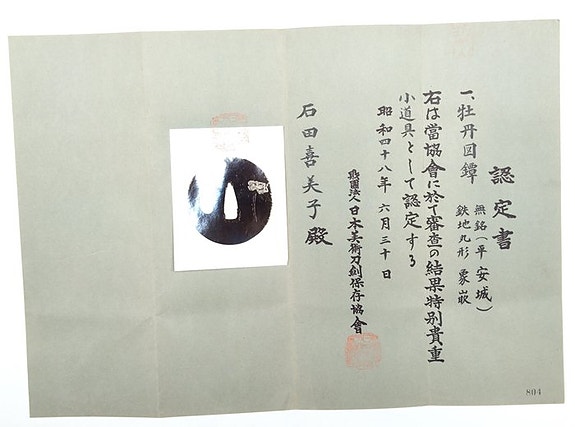 認定書
一、牡丹図鐔
無銘（平安城）
鉄地丸形 象嵌
右は當協會に於て審査の結果特別貴重
小道具として認定する
昭和四十八年 六月三十日
財團法人 日本美術刀劍保存協會
石田喜美子殿
804